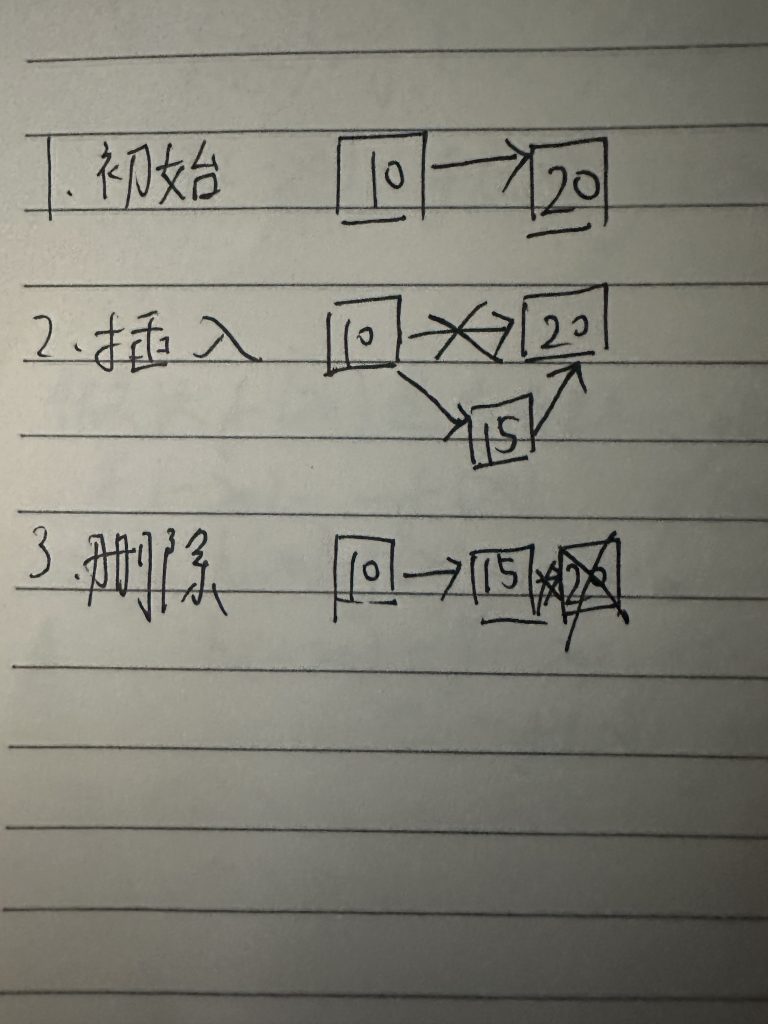 1.初始 10 → 20
2.插入 10 → 20
15
3.删除 10 → 15 20